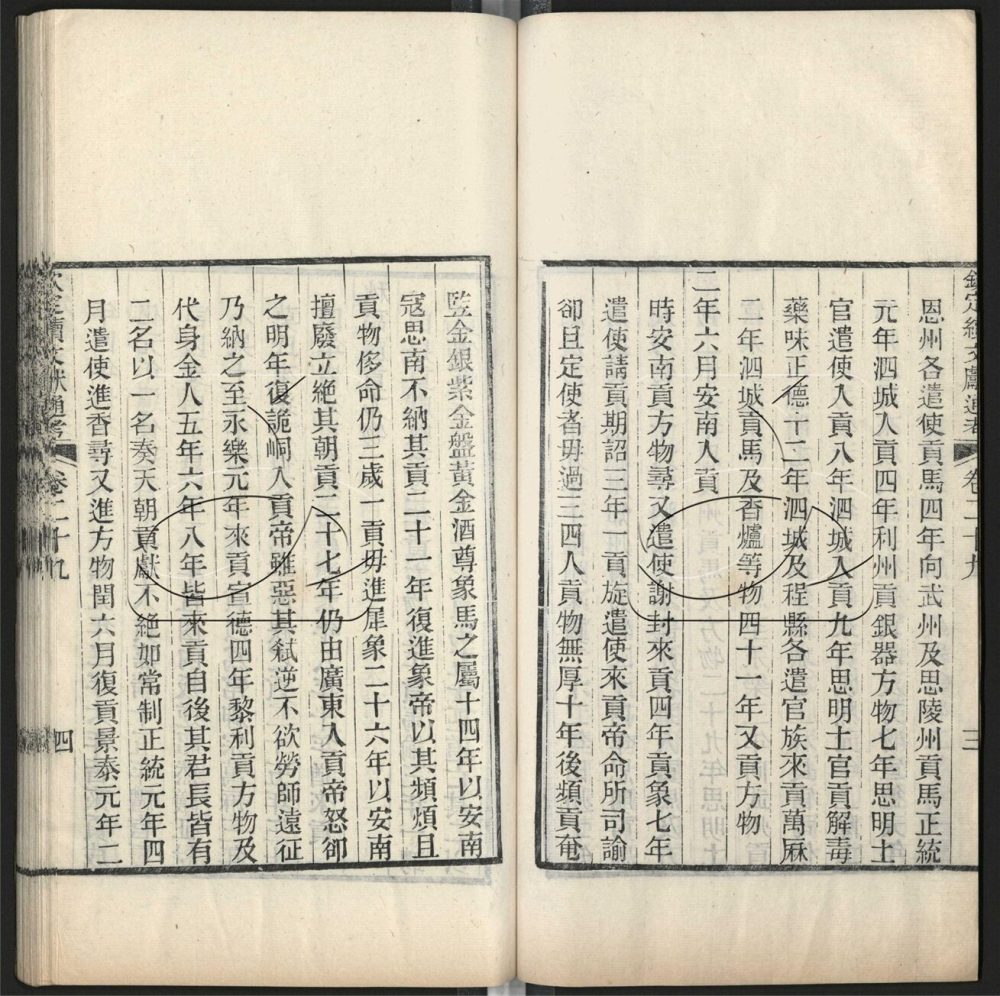 欽定續文獻通考 卷二十九 三
恩州各遣使貢馬四年向武州及思陵州貢馬正統
元年泗城入貢四年利州貢銀器方物七年思明土
官遣使入貢八年泗城入貢九年思明土官貢解毒
藥味正德十二年泗城及程縣各遣官族來貢萬厤
二年泗城貢馬及香爐等物四十一年又貢方物
二年六月安南入貢
時安南貢方物尋又遣使謝封來貢四年貢象七年
遣使請貢期詔三年一貢旋遣使來貢帝命所司諭
卻且定使者毋過三四人貢物無厚十年後頻貢奄
豎金銀紫金盤黃金酒尊象馬之屬十四年以安南
寇思南不納其貢二十一年復進象帝以其頻煩且
貢物侈命仍三歲一貢毋進犀象二十六年以安南
擅廢立絕其朝貢二十七年仍由廣東入貢帝怒卻
之明年復詭峒人貢帝雖惡其弒逆不欲勞師遠征
乃納之至永樂元年來貢宣德四年黎利貢方物及
代身金人五年六年八年皆來貢自後其君長皆有
二名以一名奏天朝貢獻不絕如常制正統元年四
月遣使進香尋又進方物閏六月復貢景泰元年二
欽定續文獻通考 卷二十九 四